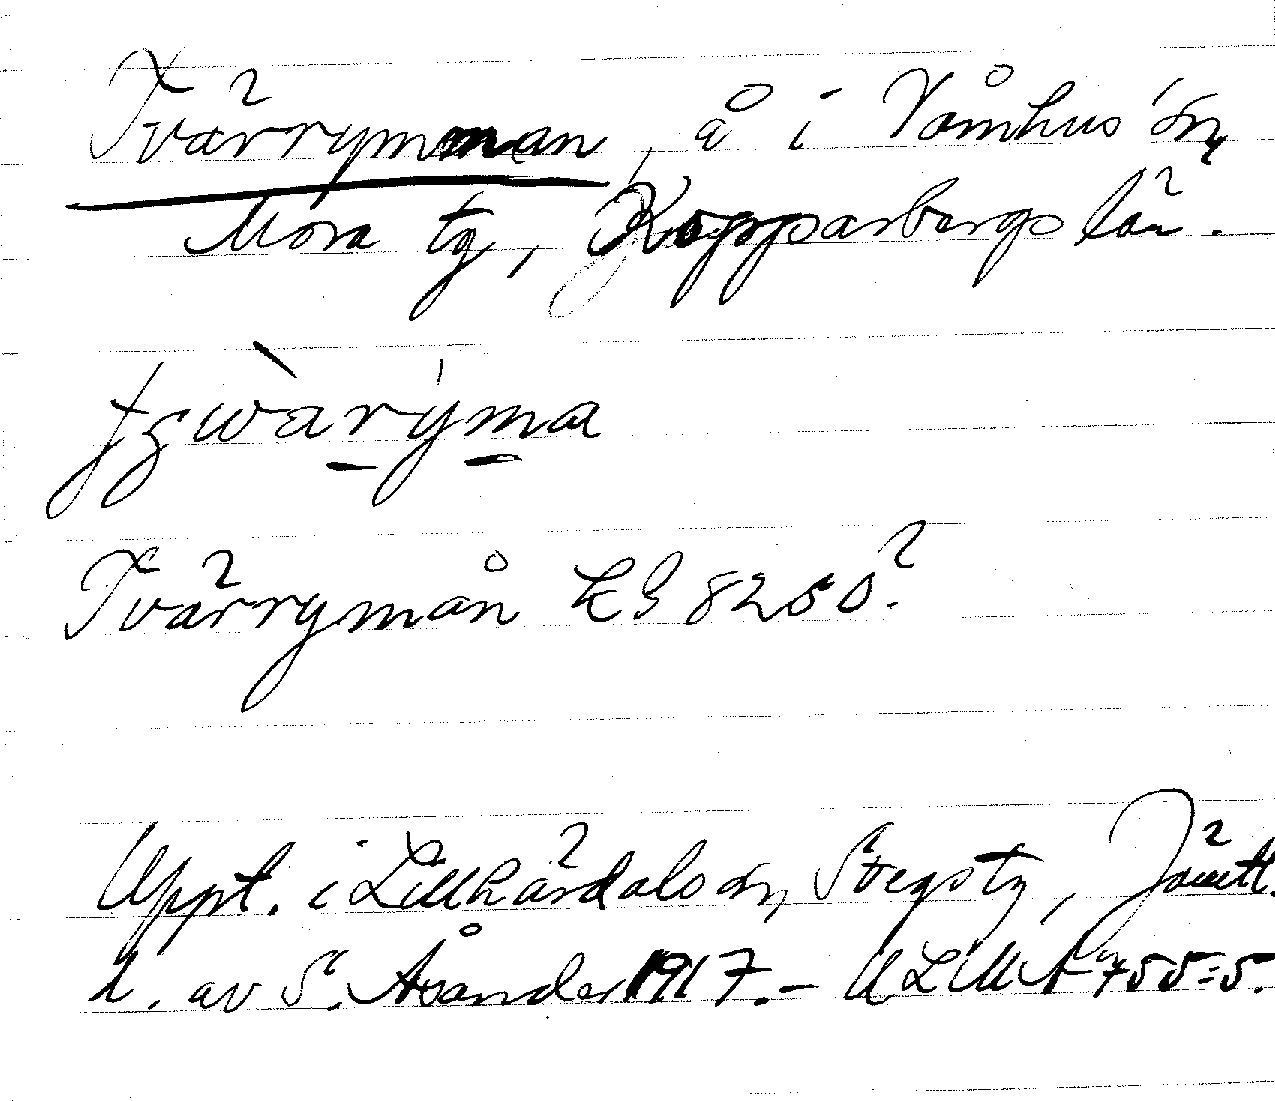 Tvärrymman, å i Våmhus sn,
Mora tg, Kopparbergs län.
Tvärrymån EG 8250?
Uppt. i Lillhärdals sn, Svegs tg, Jämtl.
l. av S. Åsander 1917. – ULMA 755:5.